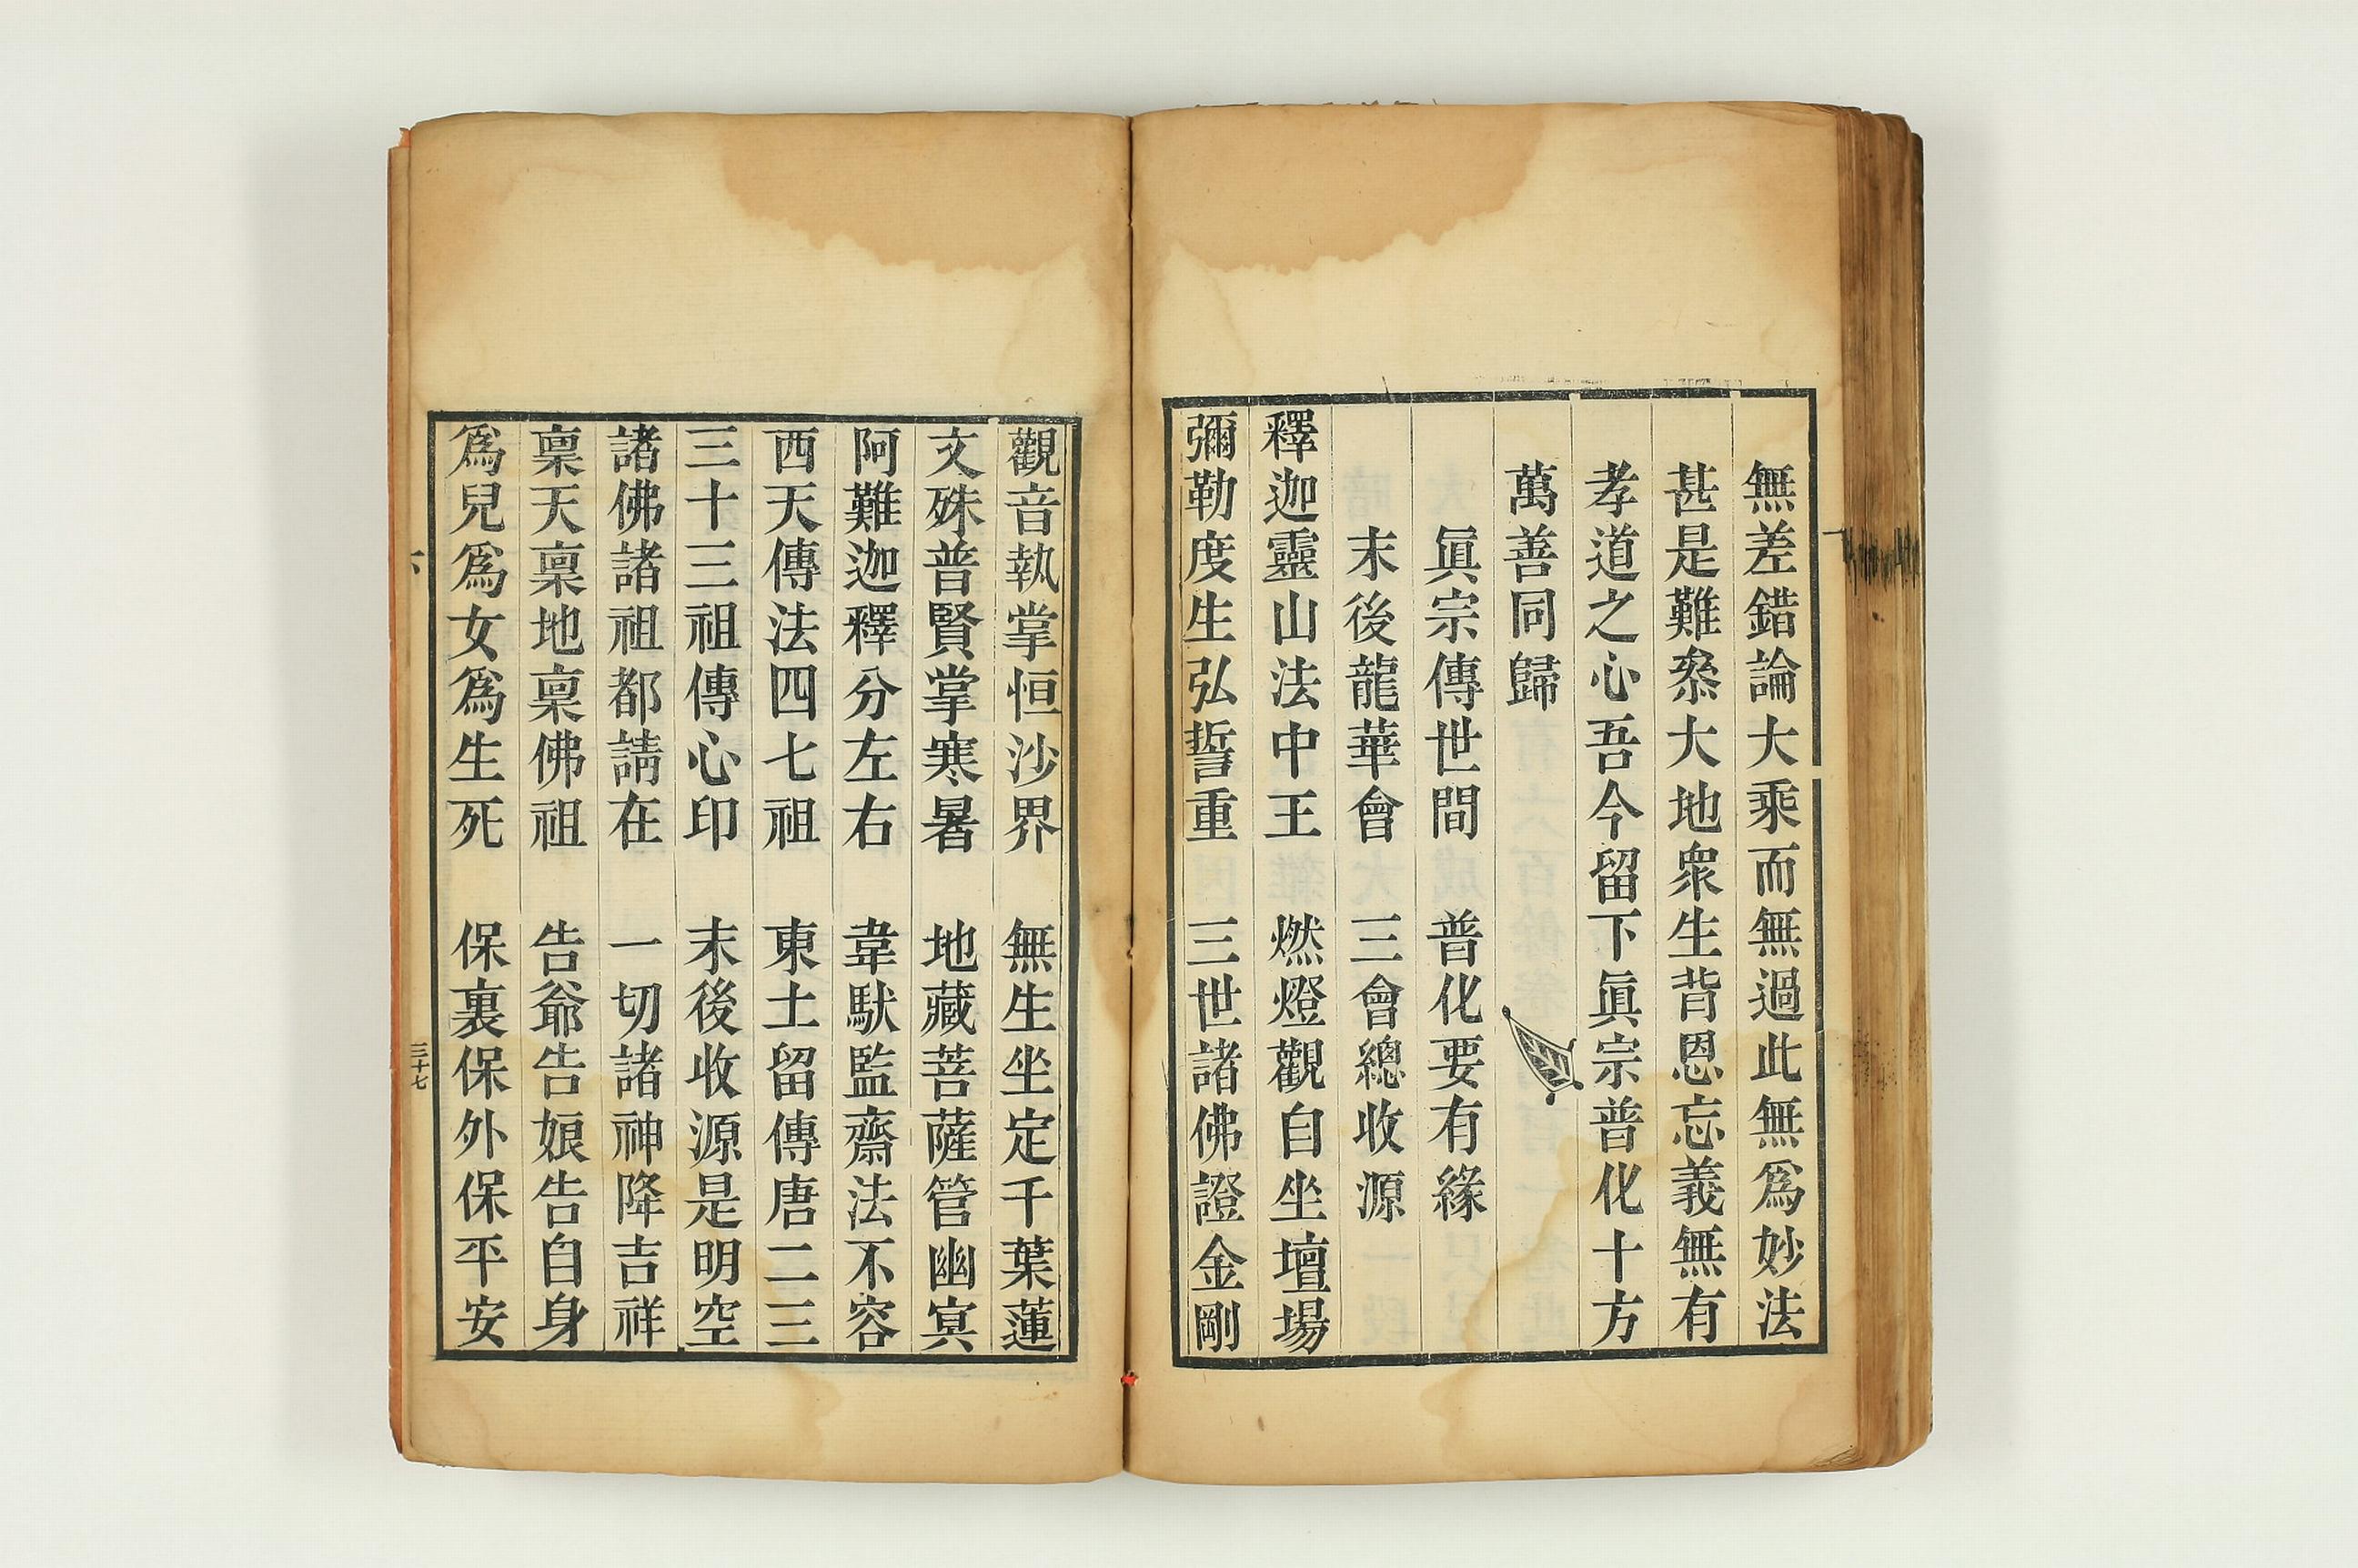 無差錯論大乘而無過此無爲妙法
甚是難叅大地衆生背恩忘義無有
孝道之心吾今留下眞宗普化十方
萬善同歸
眞宗傳世間　普化要有緣
末後龍華會　三會總收源
釋迦靈山法中王　燃燈觀自坐壇場
彌勒度生弘誓重　三世諸佛證金剛
觀音執掌恒沙界　無生坐定千葉蓮
文殊普賢掌寒暑　地藏菩薩管幽冥
阿難迦釋分左右　韋馱監齋法不容
西天傳法四七祖　東土留傳唐二三
三十三祖傳心印　末後收源是明空
諸佛諸祖都請在　一切諸神降吉祥
稟天稟地稟佛祖　告爺告娘告自身
爲兒爲女爲生死　保裏保外保平安
三十七